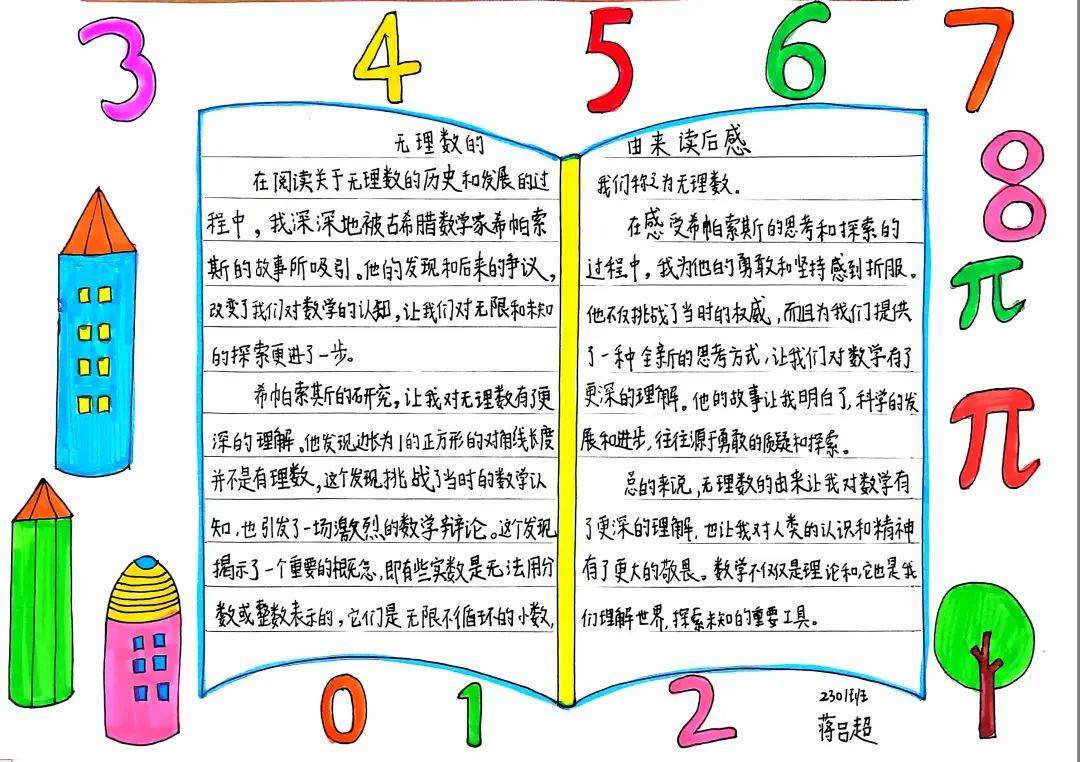 3 4 5 6 7
无理数的 由来读后感
在阅读关于无理数的历史和发展的过
程中，我深深地被古希腊数学家希帕索
斯的故事所吸引。他的发现和后来的争议，
改变了我们对数学的认知，让我们对无限和未知
的探索更进了一步。
希帕索斯的研究，让我对无理数有了更
深的理解。他发现边长为1的正方形的对角线长度
并不是有理数，这个发现挑战了当时的数学认
知，也引发了一场激烈的数学辩论。这个发现
揭示了一个重要的概念，即有些实数是无法用分
数或整数表示的，它们是无限不循环的小数，
我们称之为无理数。
在感受希帕索斯的思考和探索的
过程中，我为他的勇敢和坚持感到折服。
他不仅挑战了当时的权威，而且为我们提供
了一种全新的思考方式，让我们对数学有了
更深的理解。他的故事让我明白了，科学的发
展和进步，往往源于勇敢的质疑和探索。
总的来说，无理数的由来让我对数学有
了更深的理解，也让我对人类的认识和精神
有了更大的敬畏。数学不仅仅是理论和，它也是我
们理解世界，探索未知的重要工具。
8
π
π
0 1 2
2301班
蒋吕超